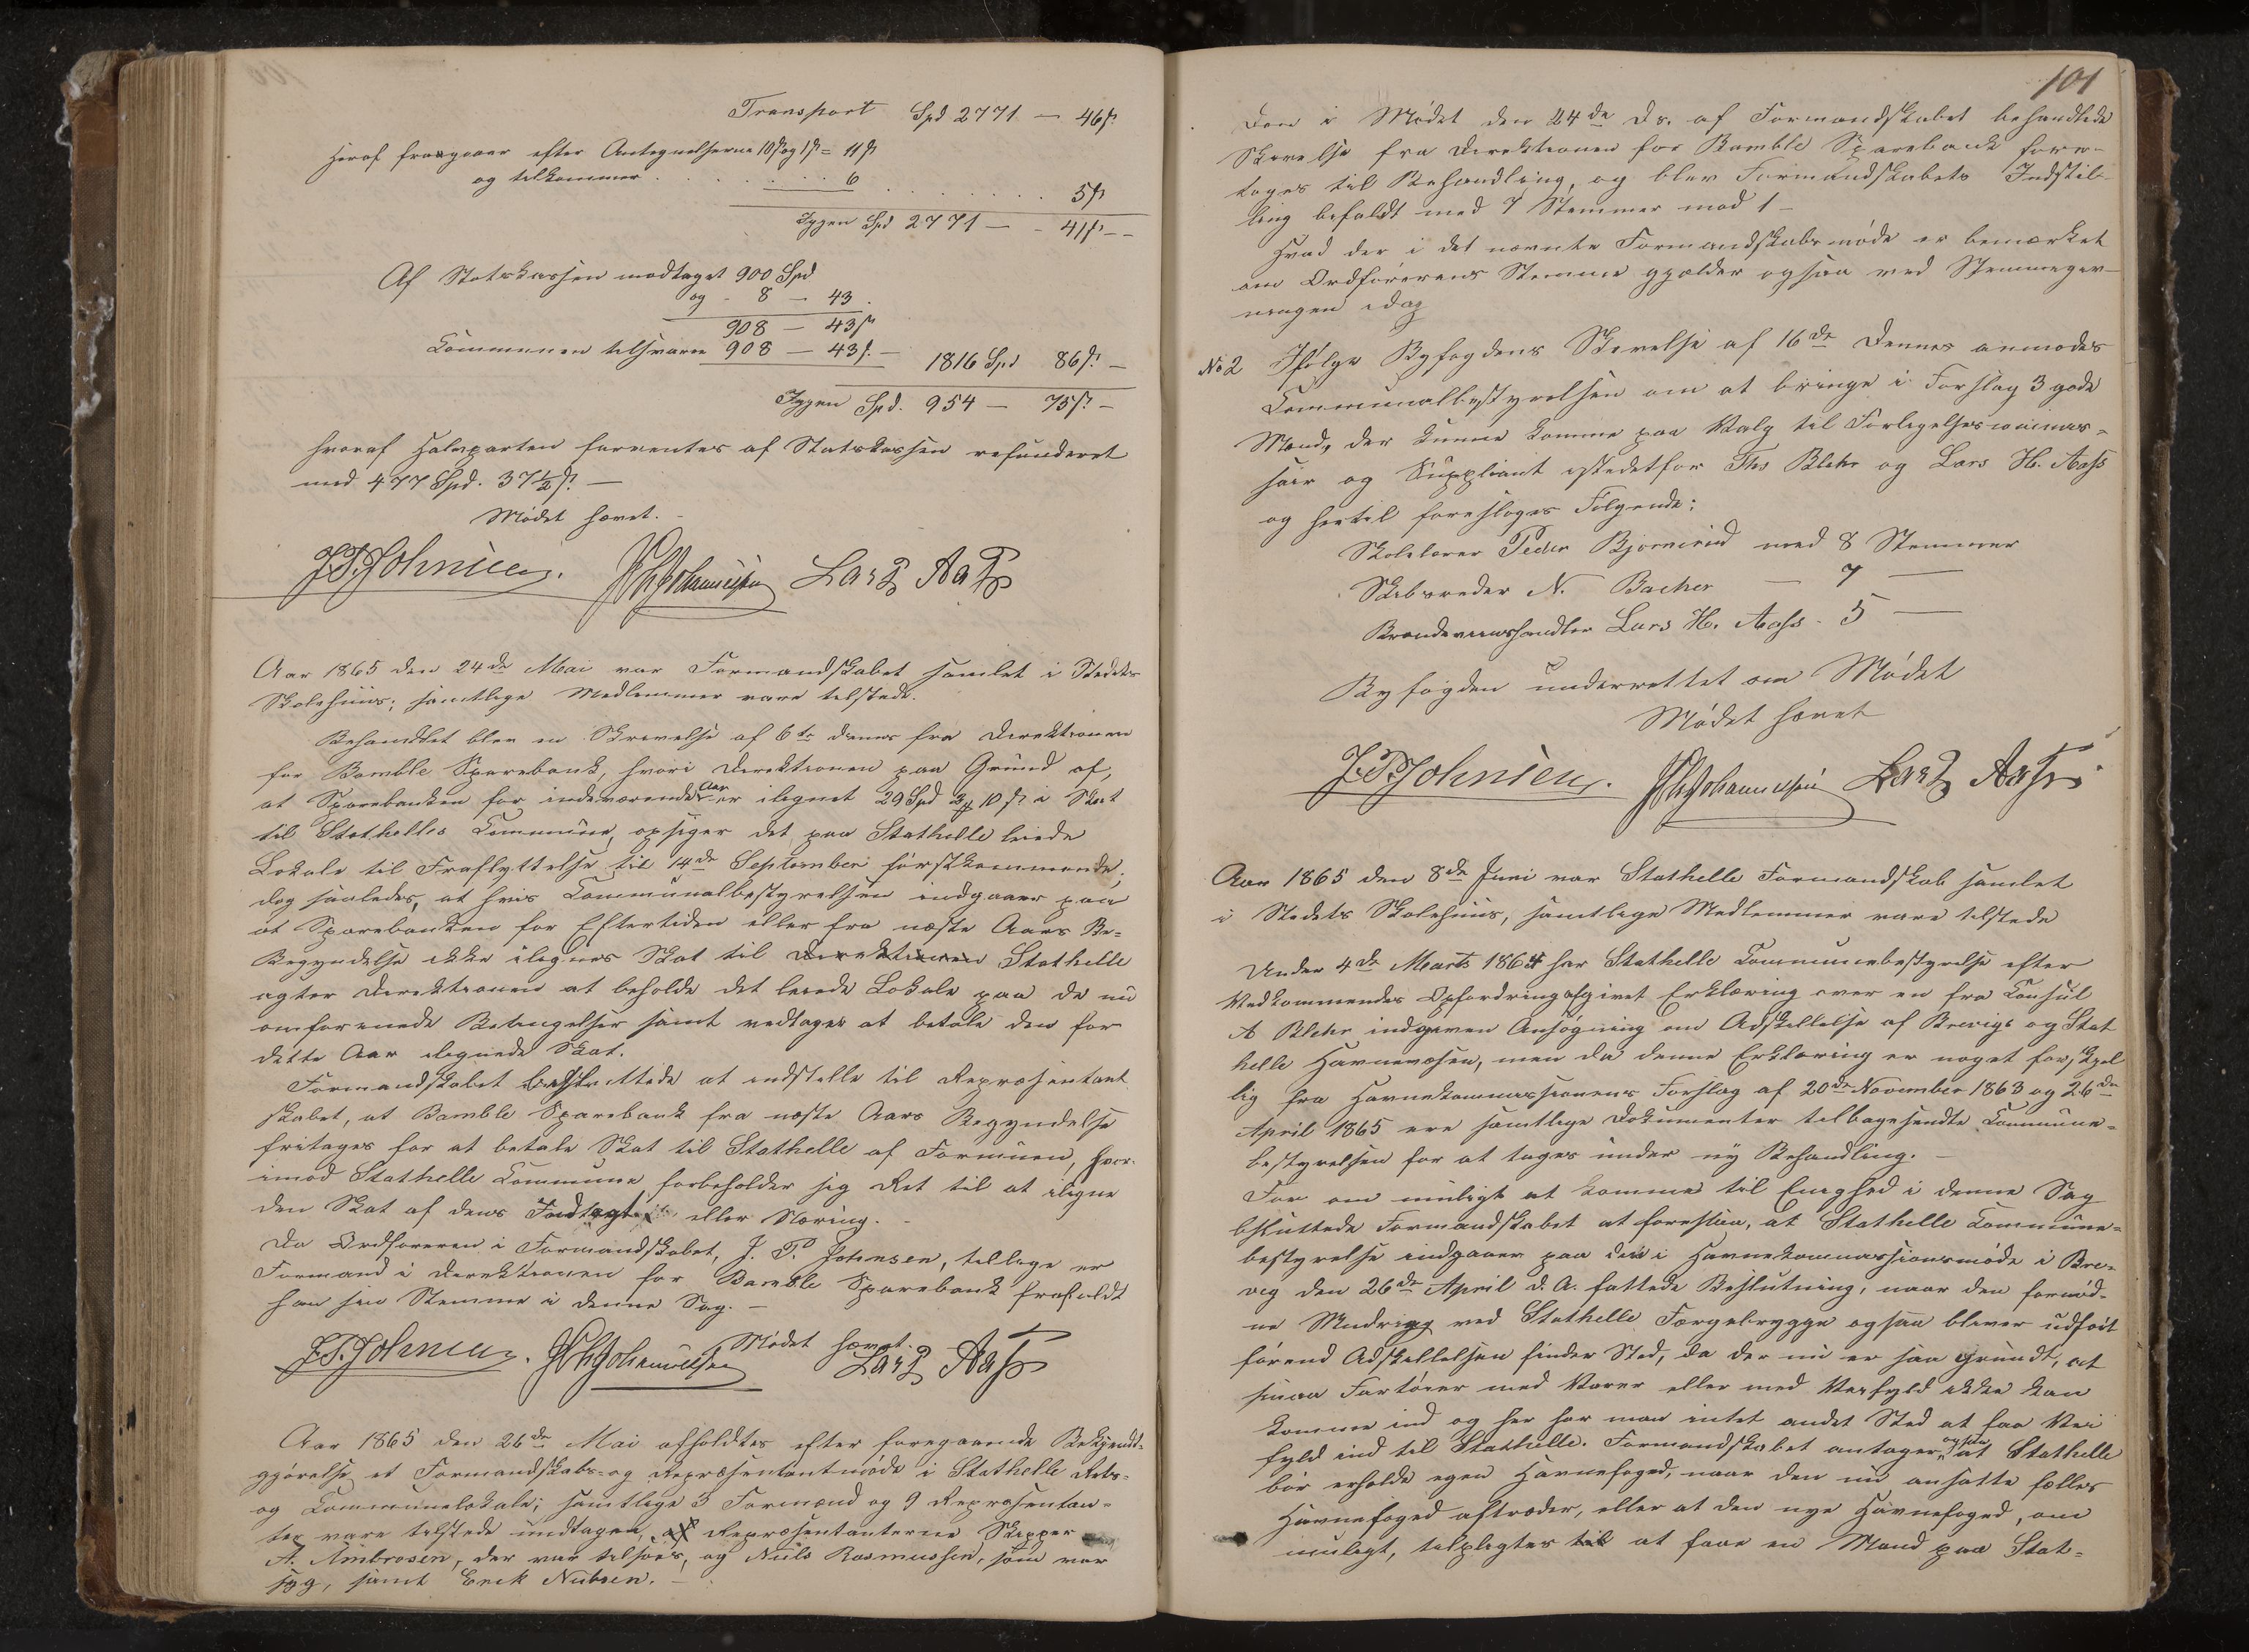 Transport Spd 2771 — 46 ß
Heraf fragaaer efter Antegnelserne 10 ß og 1 ß = 11 ß
og tilkommer . . . . . . . 6 . . . . . . . . . 5 ß
Igjen Spd 2771 — - 41 ß --
Af Statskassen modtaget 900 Spd
og - 8 - 43.
908 - 43 ß
Communen tilsvarer 908 - 43 ß. - 1816 Spd 86 ß. -
Igjen Spd. 954 - 75 ß. -
hvoraf Halvparten forventes af Statskassen refunderet
med 477 Spd. 37½ ß. -
Mødet hævet. -
J. P. Johnsen. Johannessen Lars Aass
Aar 1865 den 24de Mai var Formandskabet samlet i Stedets
Skolehuus; samtlige Medlemmer vare tilstede.
Behandlet blev en Skrivelse af 6te dennes fra Direktionen
for Bamble Sparebank, hvori Direktionen paa Grund af,
at Sparebanken for indeværende Aar er ilignet 29 Spd 2 ort 10 ß i Skat
til Stathelles Commune, opsiger det paa Stathelle leiede
Lokale til Fraflyttelse til 14de September førstkommende;
dog saaledes, at hvis Communalbestyrelsen indgaaer paa
at Sparebanken for Eftertiden eller fra næste Aars Be-
Begyndelse ikke ilignes Skat til Direktionen Stathelle
agter Direktionen at beholde det leiede Lokale paa de nu
omforenede Betingelser samt vedtager at betale den for
dette Aar ilignede Skat.
Formandskabet besluttede at indstille til Repræsentant
skabet, at Bamble Sparebank fra næste Aars Begyndelse
fritages for at betale Skat til Stathelle af Formuen, hvor-
imod Stathelle Commune forbeholder sig Ret til at iligne
den Skat af dens Indtægt eller Næring. -
Da Ordføreren i Formandskabet, J. P. Johnsen, tillige er
Formand i Direktionen for Bamble Sparebank frafaldt
han sin Stemme i denne Sag. -
Mødet hævet.
J. P. Johnsen. Johannessen Lars Aass
Aar 1865 den 26de Mai afholdtes efter foregaaende Bekjendt-
gjørelse et Formandskabs- og Repræsentantmøde i Stathelle Rets-
og Communelokale; samtlige 3 Formænd og 9 Repræsentan-
ter vare tilstede undtagen, af Repræsentanterne Skipper
A. Ambrosen, der var tilsøes, og Niils Rasmussen, som var
syg, samt Erik Nielsen. -
101
Den i Mødet den 24de ds. af Formandskabet behandlede
Skrivelse fra Direktionen for Bamble Sparebank fore-
toges til Behandling, og blev Formandskabets Indstil-
ling bifaldt med 7 Stemmer mod 1 -
Hvad der i det nævnte Formandskabsmøde er bemærket
om Ordførerens Stemme gjælder ogsaa ved Stemmegiv-
ningen idag
No 2 Ifølge Byfogdens Skrivelse af 16de dennes anmodes
Communalbestyrelsen om at bringe i Forslag 3 gode
Mænd, der kunne komme paa Valg til Forligelsescommis-
sair og Suppliant istedetfor Ths Blehr og Lars H. Aass
og hertil foresloges Følgende:
Skolelærer Peder Bjørnerud med 8 Stemmer
Skibsreder N. Bacher — 7 —
Brændeviinshandler Lars H. Aass - 5 —
Byfogden underrettet om Mødet
Mødet hævet
J. P. Johnsen. Johannessen Lars Aass.
Aar 1865 den 8de Juni var Stathelle Formandskab samlet
i Stedets Skolehuus, samtlige Medlemmer vare tilstede
Under 4de Marts 1864 har Stathelle Communebestyrelse efter
Vedkommendes Opfordring afgivet Erklæring over en fra Consul
A Blehr indgiven Ansøgning om Adskillelse af Brevigs og Stat
helle Havnevæsen, men da denne Erklæring er noget forskjel
lig fra Havnekommissionens Forslag af 20de November 1863 og 26de
April 1865 ere samtlige Dokumenter tilbagesendte Commune-
bestyrelsen for at tages under ny Behandling. -
For om muligt at komme til Enighed i denne Sag
besluttede Formandskabet at foreslaa, at Stathelle Commune-
bestyrelse indgaaer paa den i Havnekommissionsmøde i Bre-
vig den 26de April d. A. fattede Beslutning, naar den fornød-
ne Mudring ved Stathelle Færgebrygge ogsaa bliver udført
førend Adskillelsen finder Sted, da der nu er saa grundt, at
smaa Fartøier med Varer eller med Veifyld ikke kan
komme ind og her har man intet andet Sted at faa Vei
fyld ind til Stathelle. Formandskabet antager ogsaa at Stathelle
bør erholde egen Havnefoged, naar den nu ansatte fælles
Havnefoged aftræder, eller at den nye Havnefoged, om
muligt, tilpligtes til at faae en Mand paa Stat-